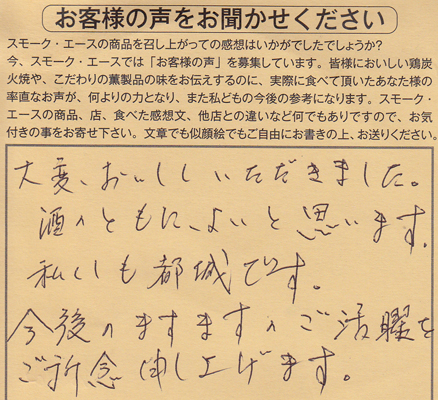 お客様の声をお聞かせください
スモーク・エースの商品を召し上がっての感想はいかがでしたでしょうか?
今、スモーク・エースでは「お客様の声」を募集しています。皆様においしい鶏炭
火焼や、こだわりの薫製品の味をお伝えするのに、実際に食べて頂いたあなた様の
率直なお声が、何よりの力となり、また私どもの今後の参考になります。スモーク・
エースの商品、店、食べた感想文、他店との違いなど何でもありですので、お気
付きの事をお寄せ下さい。文章でも似顔絵でもご自由にお書きの上、お送りください。
大変、おいしくいただきました。
酒のともに、よいと思います。
私くしも都城です。
今後のますますのご活躍を
ご祈念申し上げます。